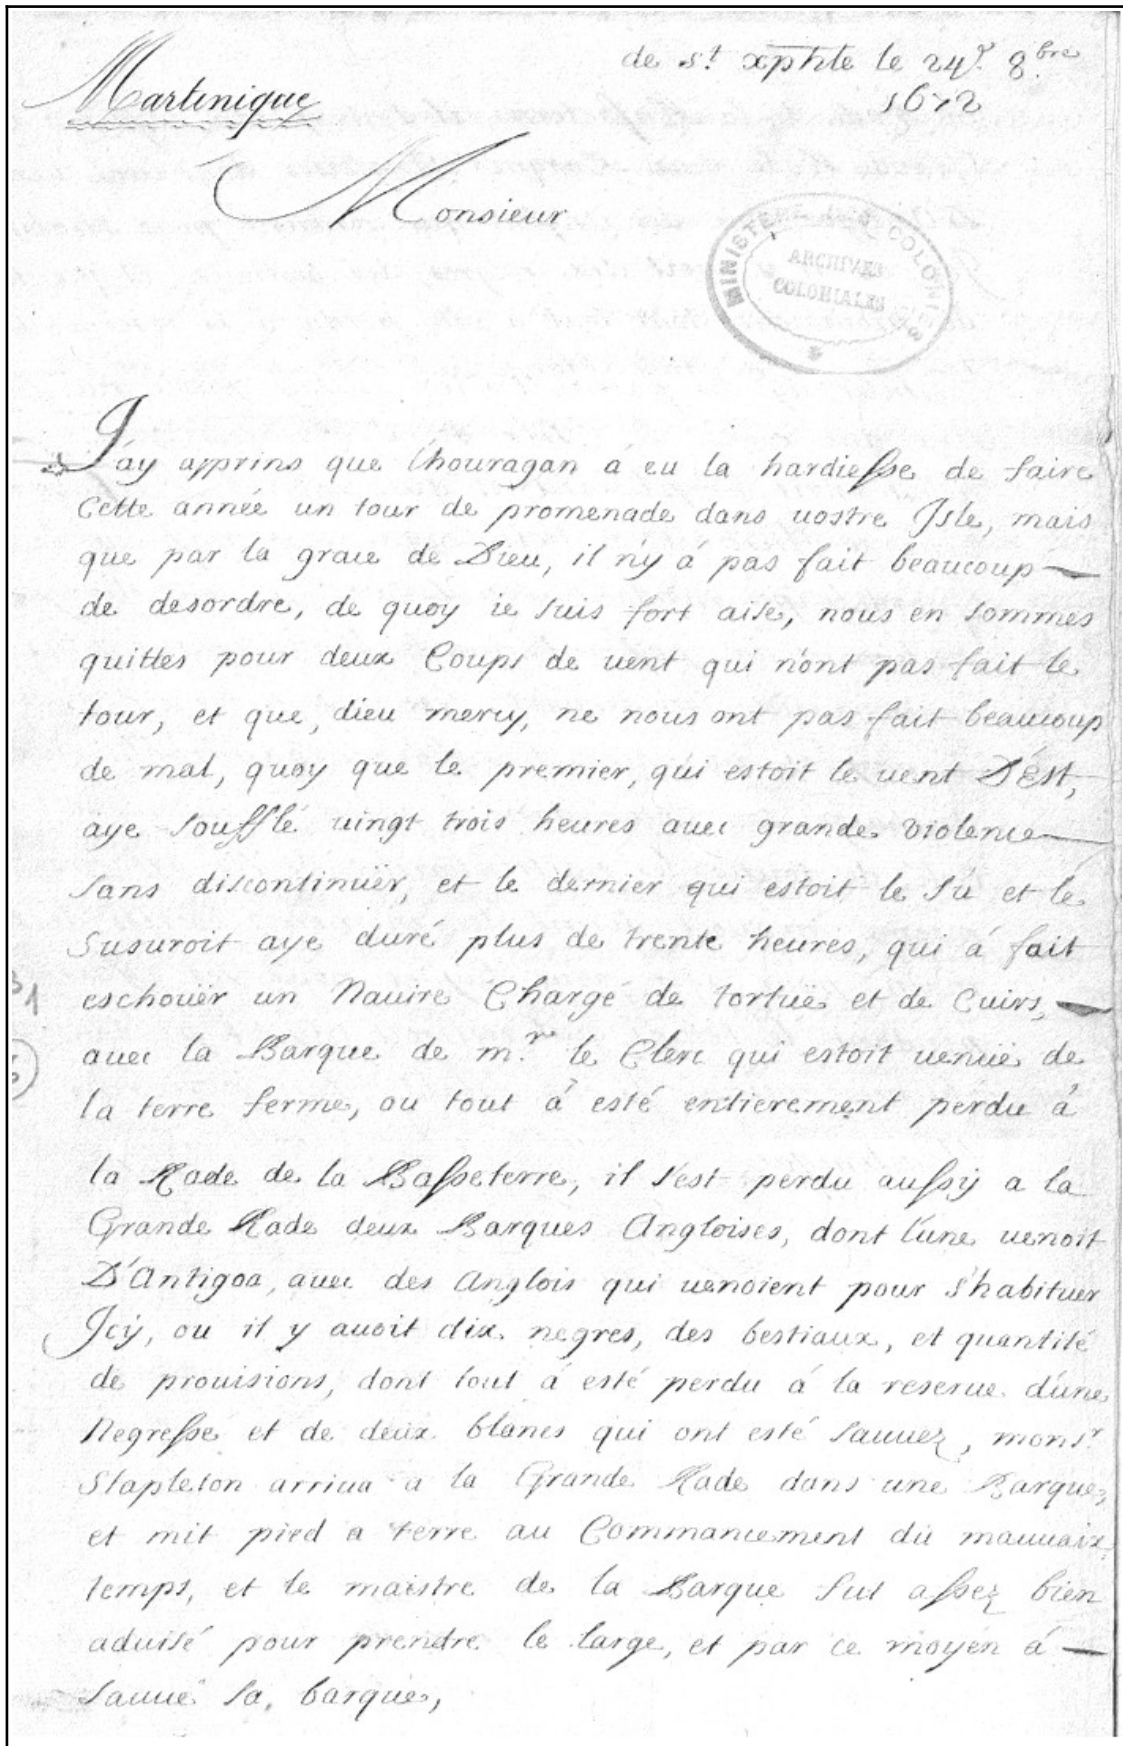 de s.t xphle le 24.e 8.bre
1672
Martinique
Monsieur
MINISTERE DES COLONIES
ARCHIVES
COLONIALES
J'ay apprins que l'houragan á eu la hardiesse de faire
Cette année un tour de promenade dans uostre Isle, mais
que par la grace de Dieu, il n'y á pas fait beaucoup
de desordre, de quoy ie suis fort aise, nous en sommes
quittes pour deux Coups de uent qui n'ont pas fait le
tour, et que, dieu mercy, ne nous ont pas fait beaucoup
de mal, quoy que le premier, qui estoit le uent D'Est,
aye soufflé uingt trois heures auec grande violence
sans discontinuër, et le dernier qui estoit le Su et le
Susuroit aye duré plus de trente heures, qui á fait
eschouër un Nauire Chargé de tortuë et de Cuirs,
auec la Barque de m.r le Clerc qui estoit uenuë de
la terre ferme, ou tout á esté entierement perdu á
la Rade de la Basseterre, il s'est perdu aussÿ a la
Grande Rade deux Barques Angloises, dont l'une uenoit
D'Antigoa, auec des Anglois qui uenoient pour s'habituer
Icÿ, ou il y auoit dix negres, des bestiaux, et quantité
de prouisions, dont tout á esté perdu á la reserue d'une
Negresse et de deux blancs qui ont esté sauuez, mons.r
Stapleton arriua a la Grande Rade dans une Barque,
et mit pied a terre au Commancement du mauuaix
temps, et le maistre de la Barque fut assez bien
aduisé pour prendre le large, et par ce moyen á
sauué sa, barque,